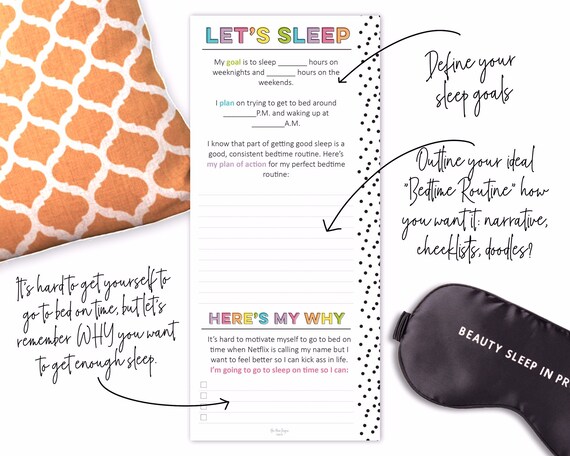 LET'S SLEEP
My goal is to sleep _______ hours on
weeknights and _______ hours on the
weekends.
I plan on trying to get to bed around
________P.M. and waking up at
________A.M.
I know that part of getting good sleep is a
good, consistent bedtime routine. Here's
my plan of action for my perfect bedtime
routine:
HERE'S MY WHY
It's hard to motivate myself to go to bed on
time when Netflix is calling my name but I
want to feel better so I can kick ass in life.
I'm going to go to sleep on time so I can:
Define your
sleep goals
Outline your ideal
"Bedtime Routine" how
you want it: narrative,
checklists, doodles?
It's hard to get yourself to
go to bed on time, but let's
remember WHY you want
to get enough sleep.
BEAUTY SLEEP IN PR